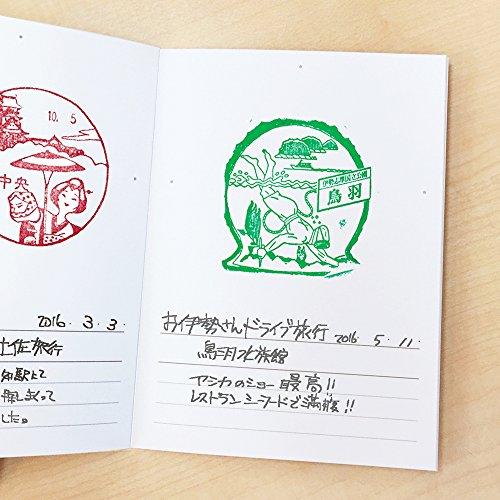 10.5
中央
2016.3.3.
土佐旅行
知駅にて
探しまくって
した。
伊勢志摩国立公園
鳥羽
お伊勢さんドライブ旅行 2016.5.11.
鳥羽水族館
アシカのショー 最高!!
レストランシーフードで満腹!!